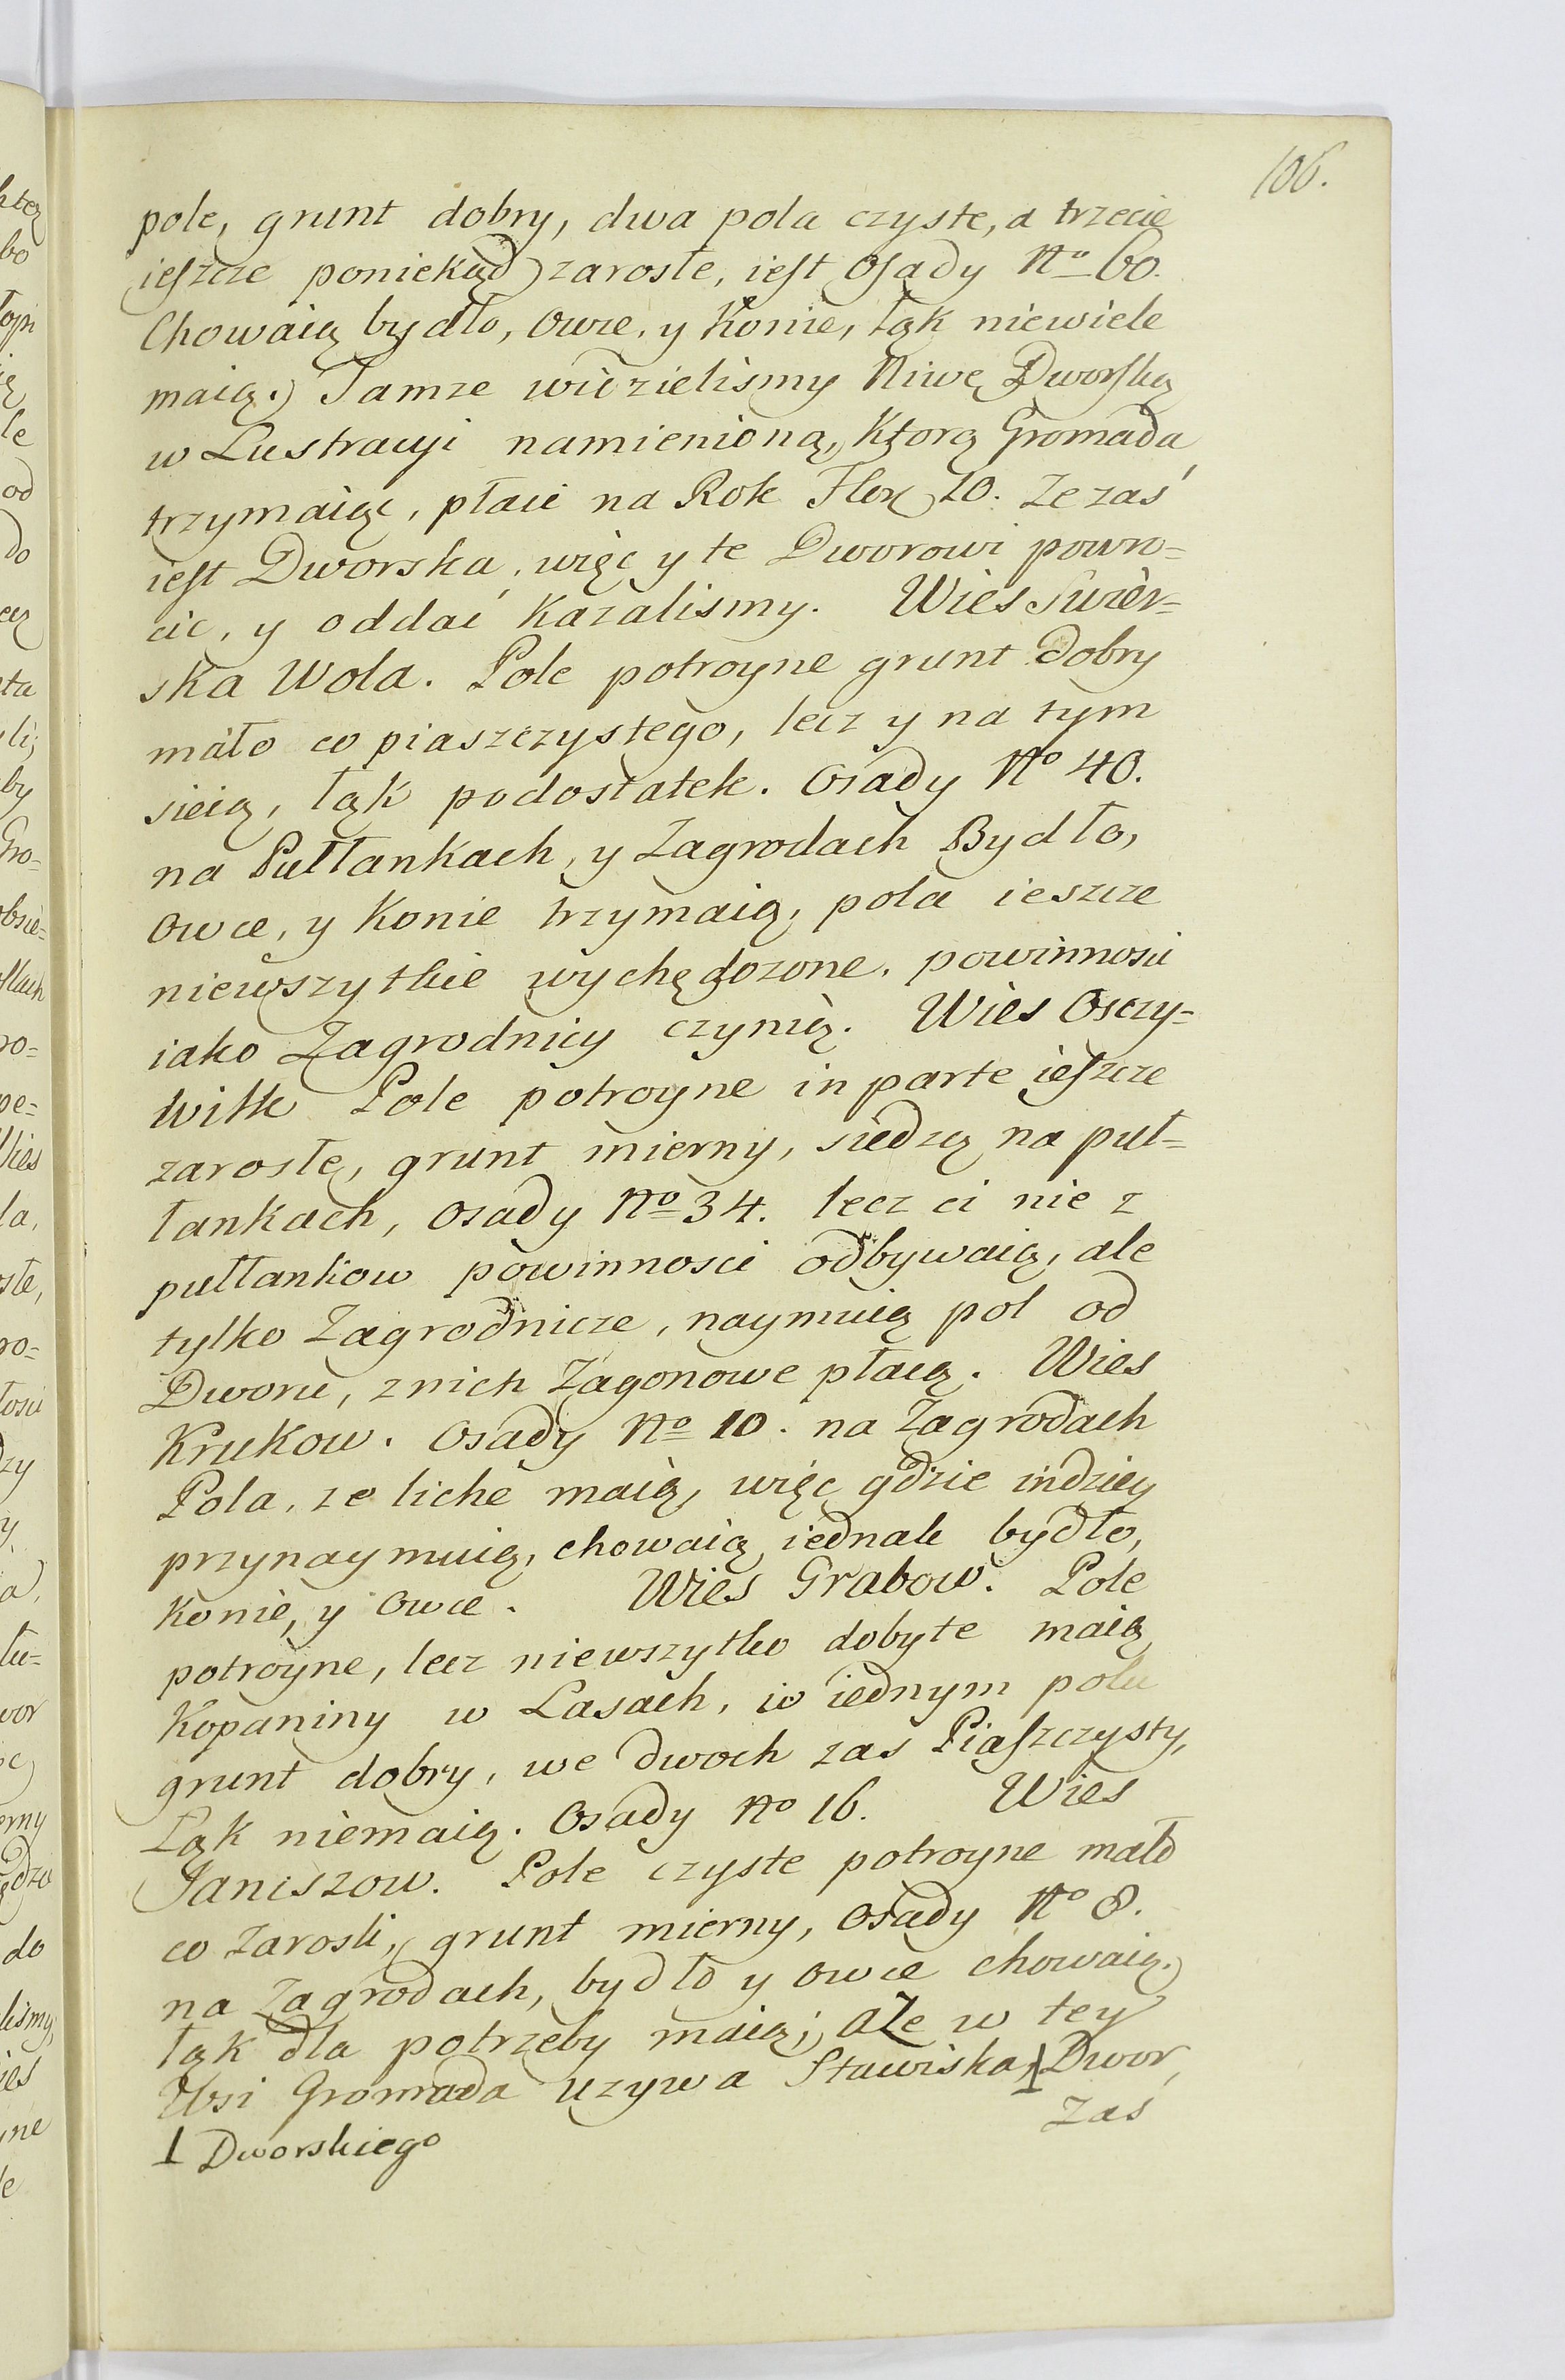 106.
pole, grunt dobry, dwa pola czyste, a trzecie
ieszcze poniekąd zarosłe, iest Osady No 60.
Chowaią bydło, owce, y Konie, łąk niewiele
maią. Tamze widzielismy Niwę Dworską
w Lustracyi namienioną, Ktorą Gromada
trzymaiąc, płaci na Rok Flor 10. Ze zaś
iest Dworska, więc y te Dworowi powro=
cic, y oddać Kazalismy. Wies Swier=
ska Wola. Pole potroyne grunt dobry
mało co piaszczystego, lecz y na tym
sieią, łąk podostatek. Osady No 40.
na Pułłankach, y Zagrodach Bydło,
Owce, y Konie trzymaią, pola ieszcze
niewszytkie wychędozone, powinnosci
iako Zagrodnicy czynią. Wies Oszczy=
witk Pole potroyne in parte ieszcze
zarosłe, grunt mierny, siedzą na puł=
łankach, Osady No 34. lecz ci nie z
pułłankow powinnosci odbywaią, ale
tylko Zagrodnicze, naymuią pol od
Dworu, z nich Zagonowe płacą. Wies
Krukow. Osady No 10. na Zagrodach
Pola, ze liche maią, więc gdzie indziey
przynaymuią, chowaią iednak bydło,
Konie, y Owce. Wies Grabow. Pole
potroyne, lecz niewszytko dobyte maią
Kopaniny w Lasach, w iednym polu
grunt dobry, we dwoch zas Piaszczysty,
Łąk niemaią. Osady No 16. Wies
Janiszow. Pole czyste potroyne mało
co zarosli, grunt mierny, Osady No 8.
na Zagrodach, bydło y owce chowaią.
łąk dla potrzeby maią; aze w tey
Wsi Gromada uzywa Stawiska ⊥ Dwor,
zas
⊥ Dworskiego